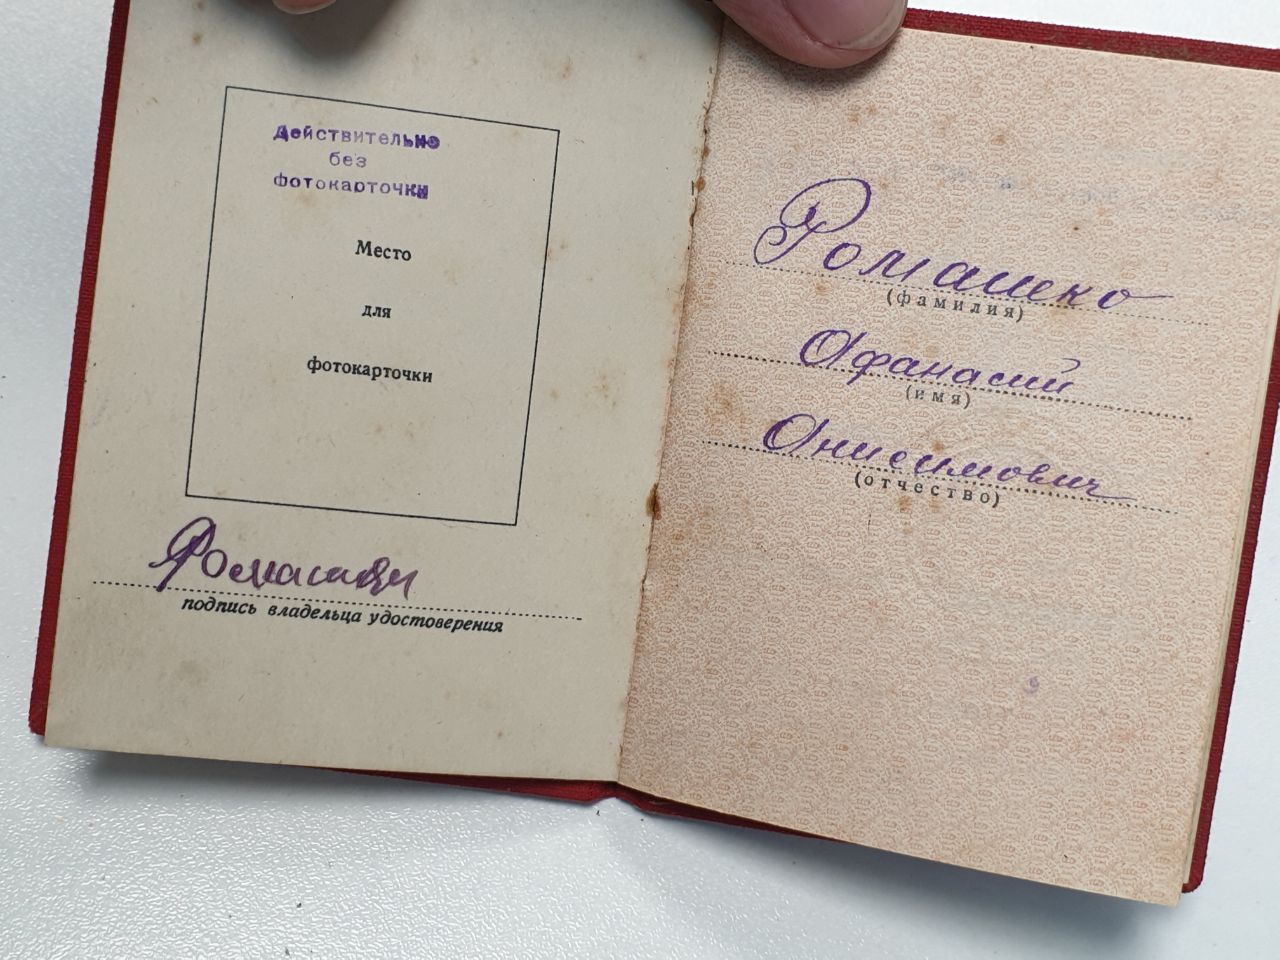 Действительно
без
фотокарточки
Место
для
фотокарточки
подпись владельца удостоверения
Ромашко
(фамилия)
Афанасий
(имя)
Анисимович
(отчество)